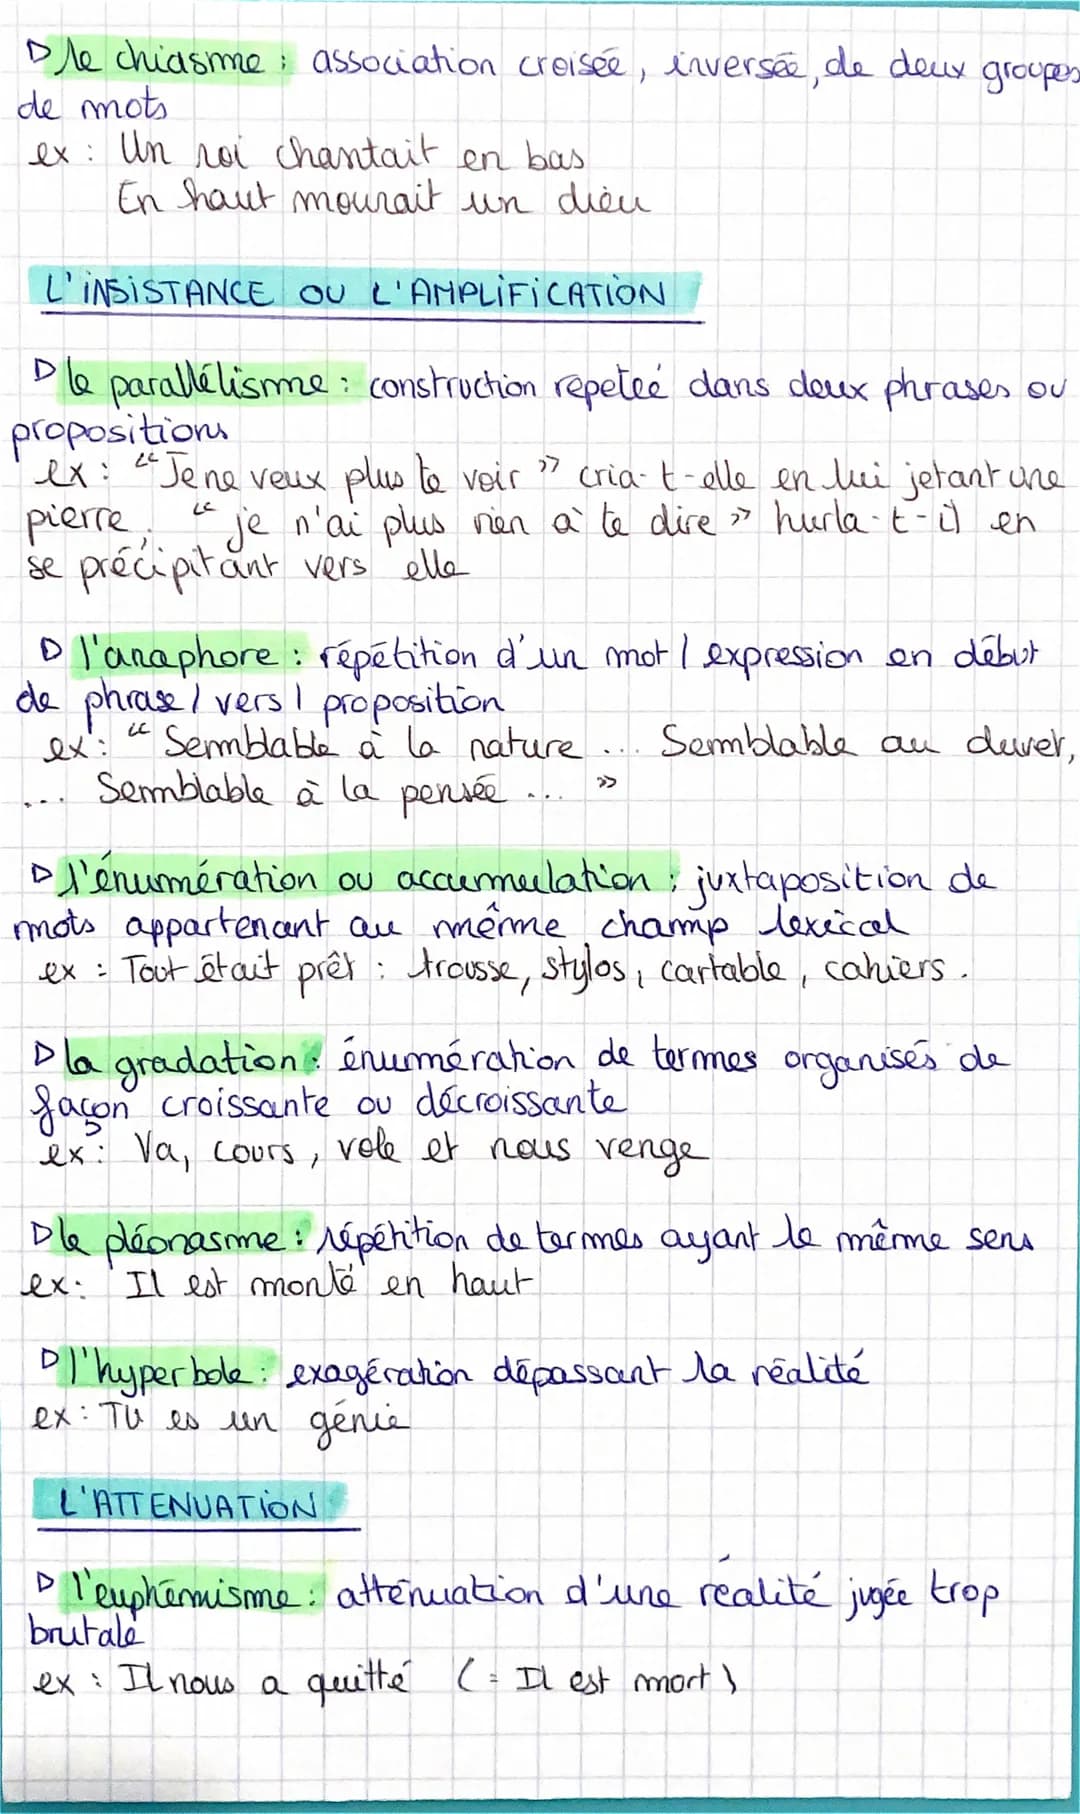 ▷ le chiasme : association croisée, inversée, de deux groupes
de mots
ex : Un roi chantait en bas
En haut mourait un dieu
L'INSISTANCE OU L'AMPLIFICATION
▷ le parallélisme : construction répeteé dans deux phrases ou
propositions
ex : “Je ne veux plus te voir » cria-t-elle en lui jetant une
pierre. “ je n'ai plus rien à te dire » hurla-t-il en
se précipitant vers elle
▷ l'anaphore : répétition d'un mot / expression en début
de phrase / vers / proposition
ex : “ Semblable à la nature ... Semblable au duvet,
... Semblable à la pensée ... »
▷ l'énumération ou accumulation : juxtaposition de
mots appartenant au même champ lexical
ex : Tout était prêt : trousse, stylos, cartable, cahiers.
▷ la gradation : énumération de termes organisés de
façon croissante ou décroissante
ex : Va, cours, vole et nous venge
▷ le pléonasme : répétition de termes ayant le même sens
ex : Il est monté en haut
▷ l'hyperbole : exagération dépassant la réalité
ex : TU es un génie
L'ATTENUATION
▷ l'euphémisme : atténuation d'une réalité jugée trop
brutale
ex : Il nous a quitté (= Il est mort)